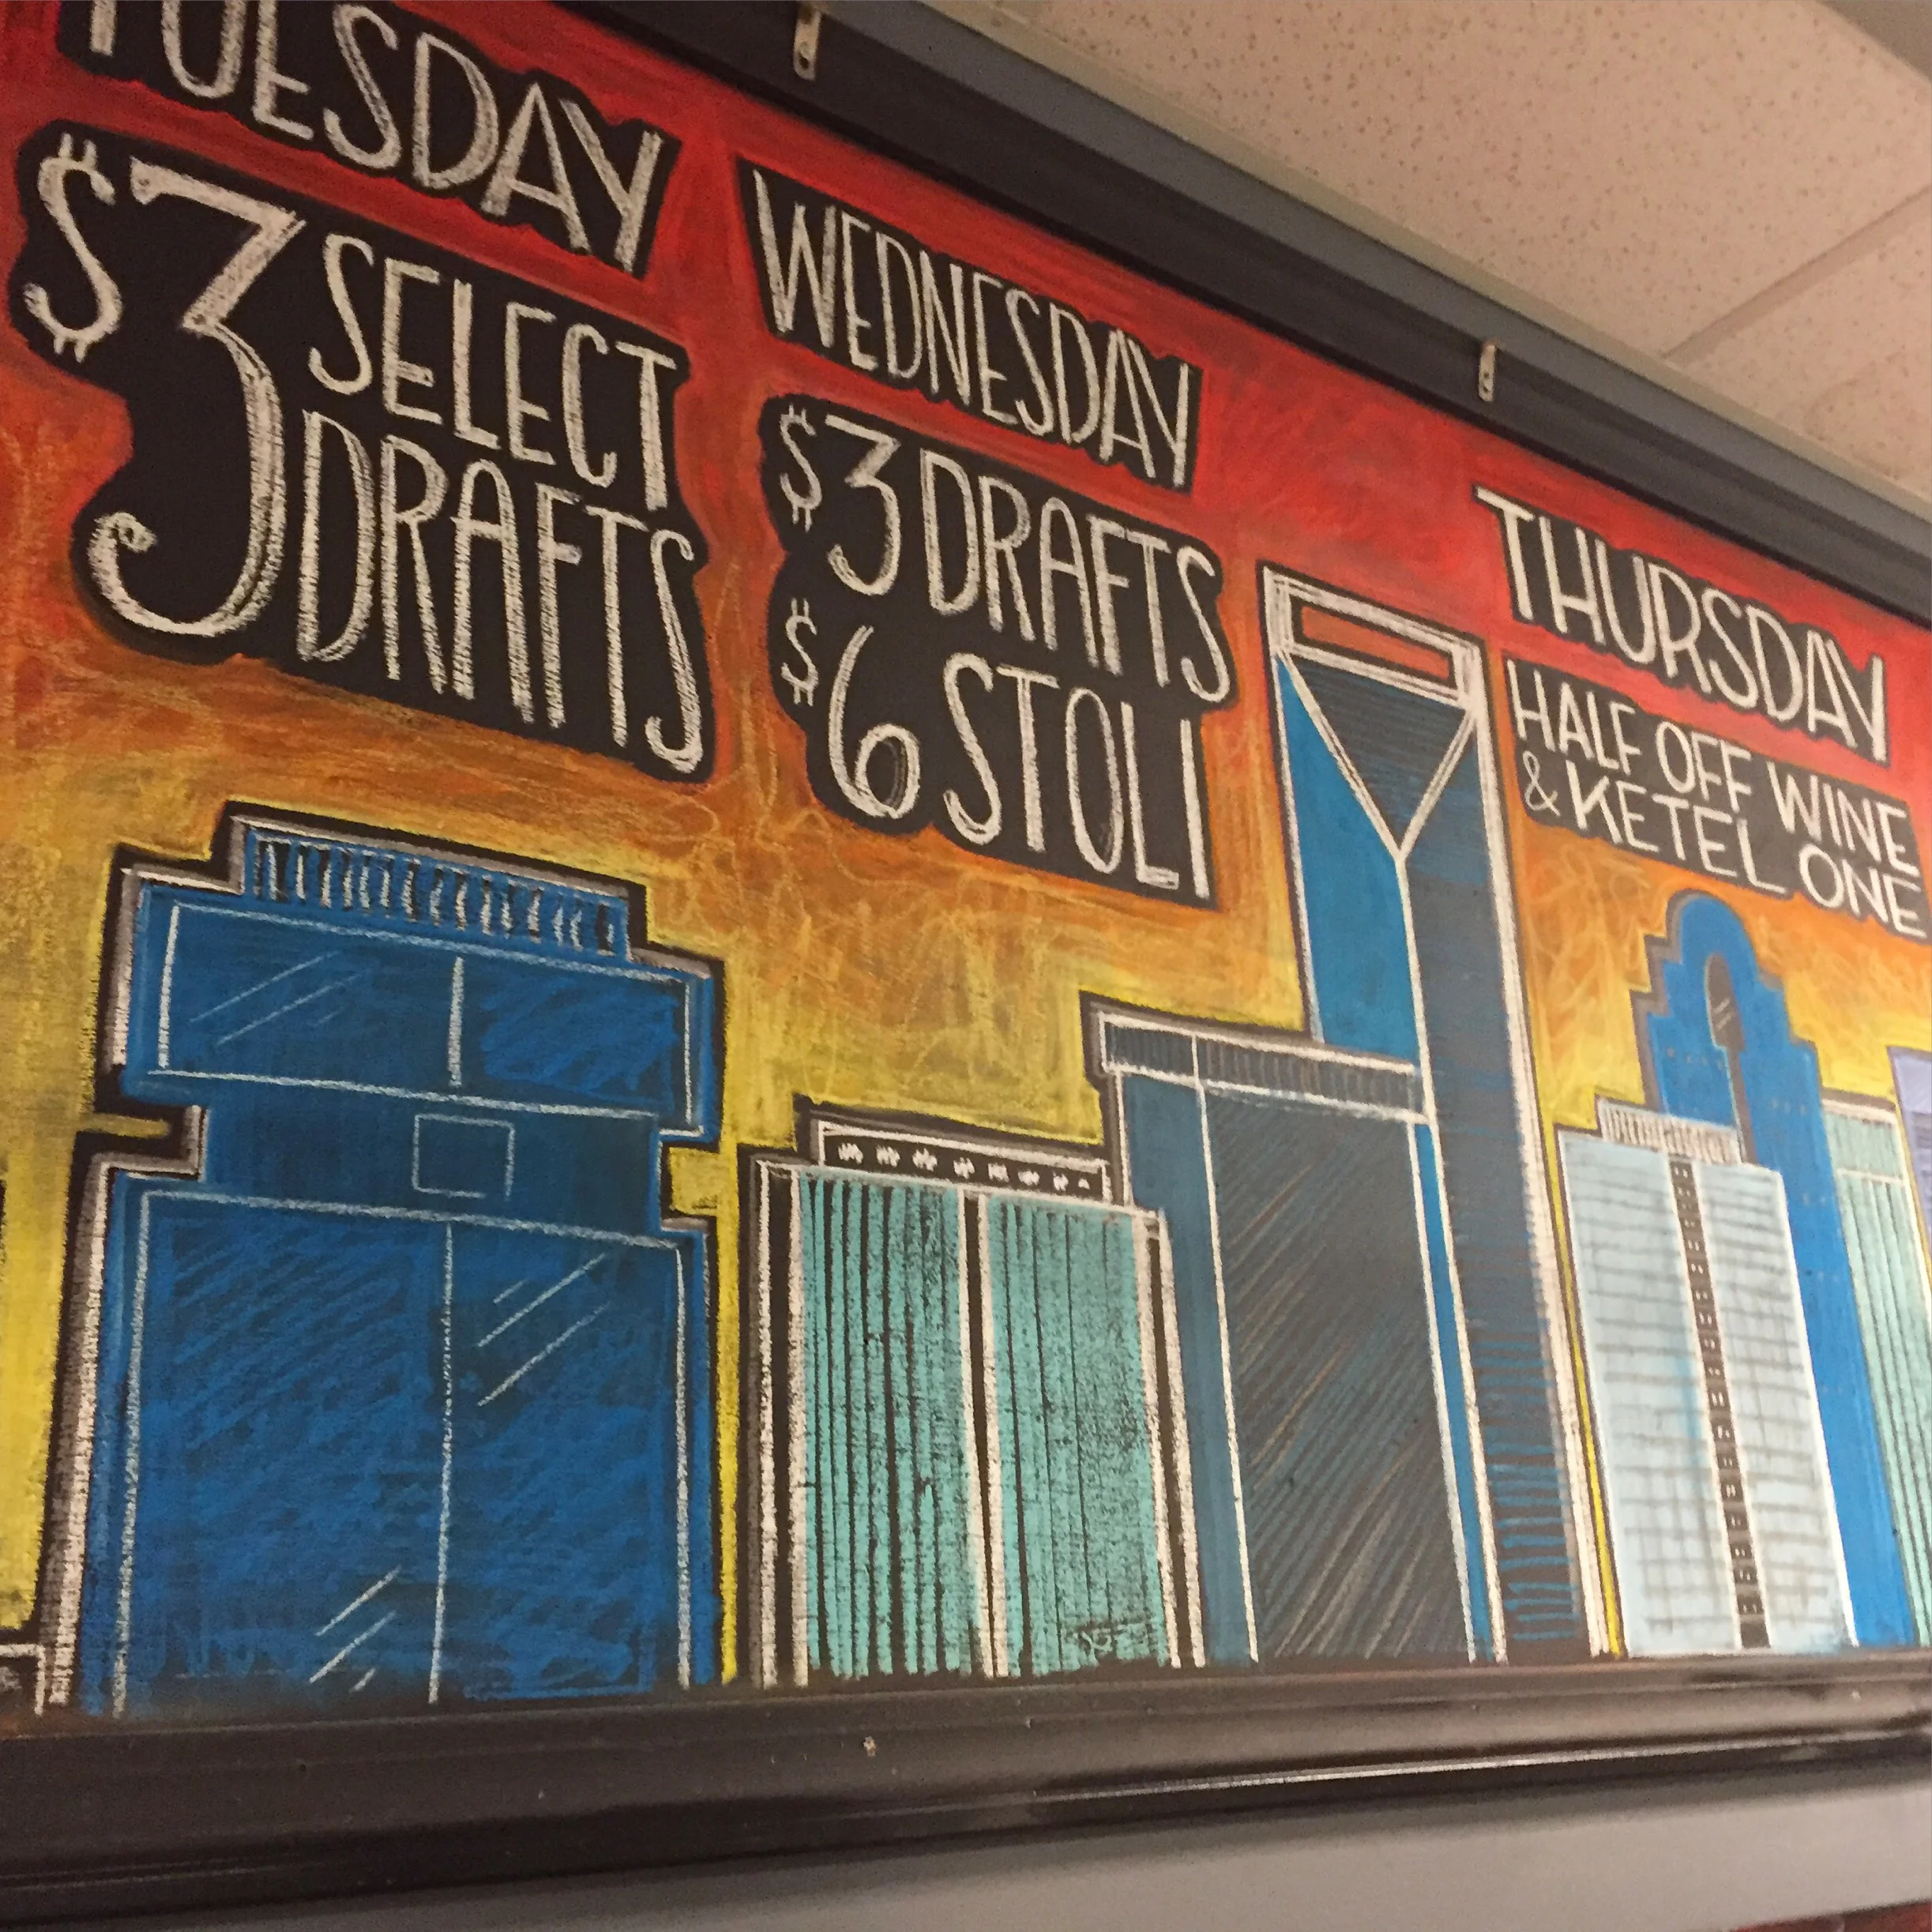 TUESDAY
$3 SELECT
DRAFTS
WEDNESDAY
$3 DRAFTS
$6 STOLI
THURSDAY
HALF OFF WINE
& KETEL ONE